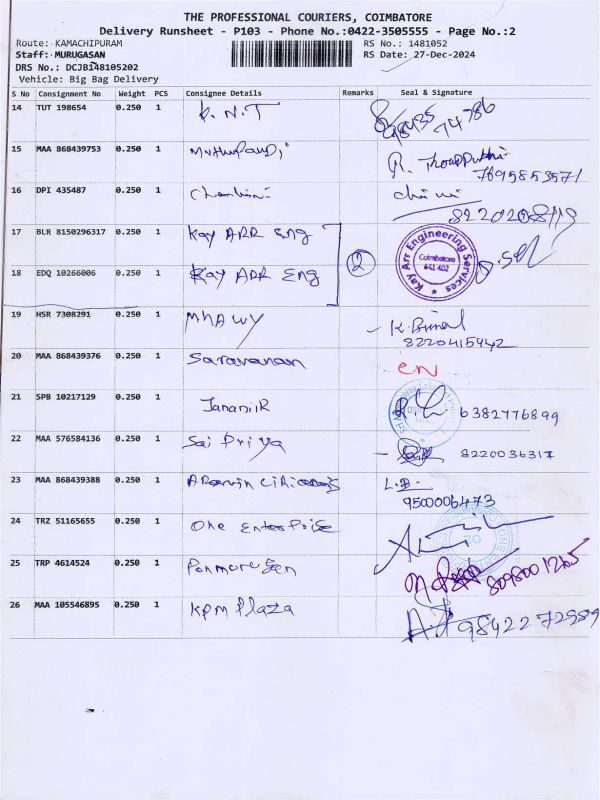 THE PROFESSIONAL COURIERS, COIMBATORE
Delivery Runsheet - P103 - Phone No.:0422-3505555 - Page No.:2
Route: KAMACHIPURAM RS No.: 1481052
Staff: MURUGASAN RS Date: 27-Dec-2024
DRS No.: DCJB148105202
Vehicle: Big Bag Delivery
S No Consignment No Weight PCS Consignee Details Remarks Seal & Signature
14 TUT 198654 0.250 1 K.N.T 98435 74786
15 MAA 868439753 0.250 1 Muthupandi 7695853571
16 DPI 435487 0.250 1 8220208119
17 BLR 8150296317 0.250 1 Kay ARR Eng
Kay Arr Engineering Services
Coimbatore
641 402
2
18 EDQ 10266006 0.250 1 Kay ARR Eng
19 HSR 7308291 0.250 1 K. Bimal
8220415942
20 MAA 868439376 0.250 1 Saravanan CN
21 SPB 10217129 0.250 1 Janani R 6382776899
22 MAA 576584136 0.250 1 Sai Priya 8220036317
23 MAA 868439388 0.250 1 L.B.
9500006473
24 TRZ 51165655 0.250 1 One Enterprise
25 TRP 4614524 0.250 1 Ponmurugen
26 MAA 105546895 0.250 1 KPM Plaza 9842272989